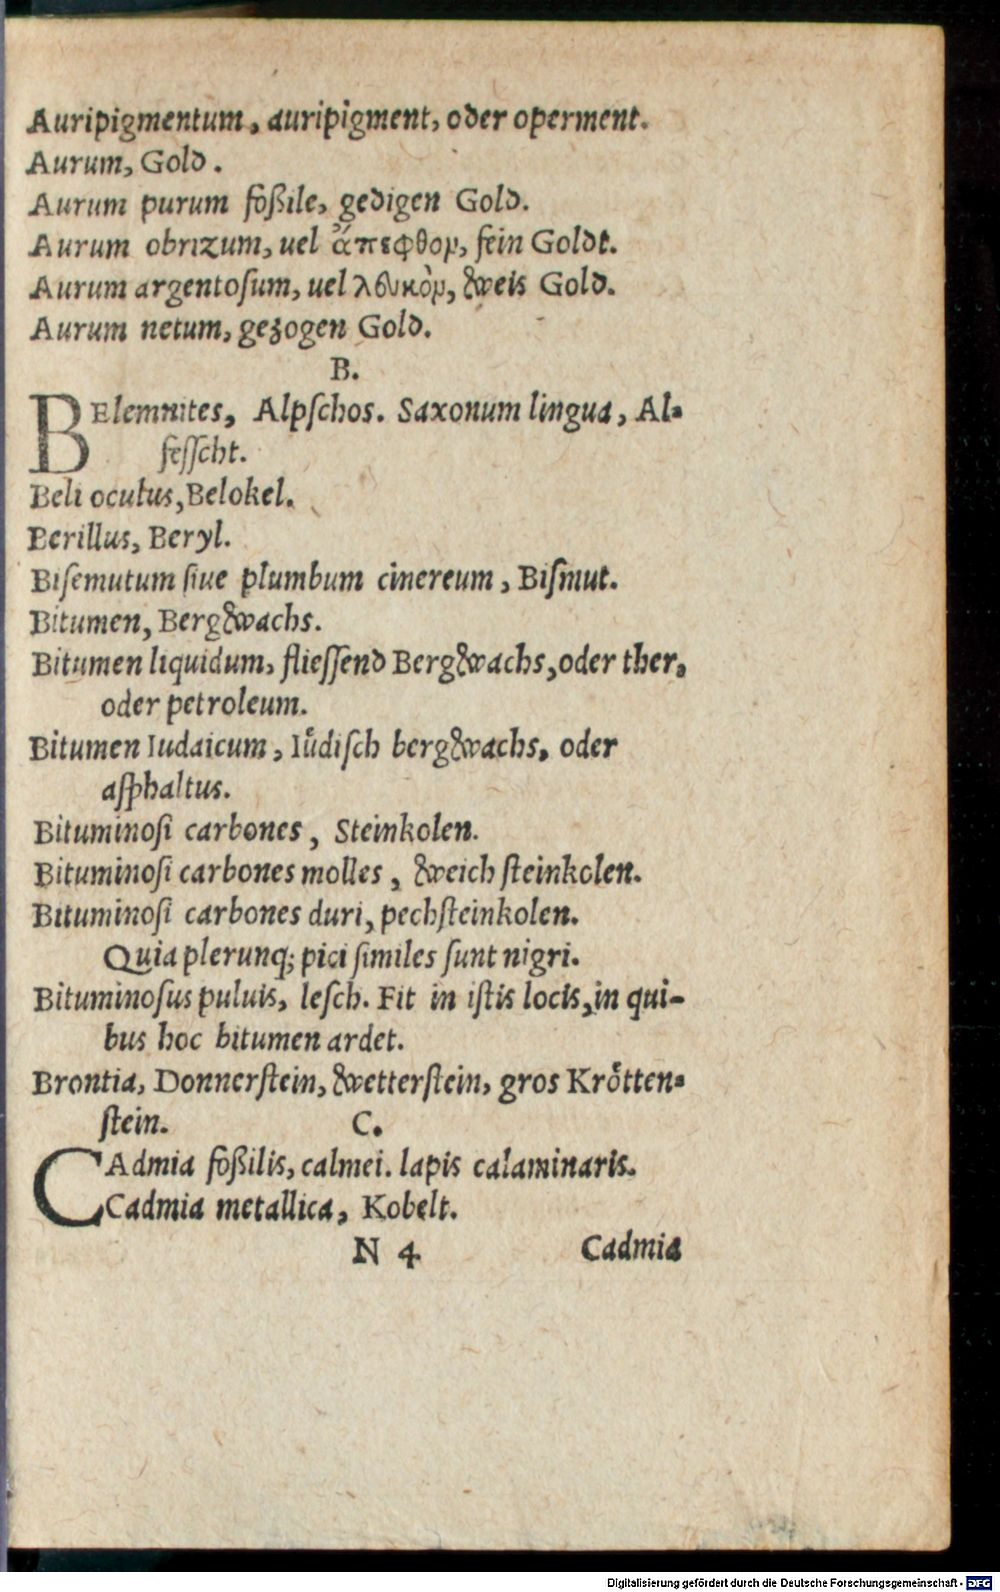 Auripigmentum, auripigment, oder operment.
Aurum, Gold.
Aurum purum foßile, gedigen Gold.
Aurum obrizum, uel ἄπεφθομ, fein Goldt.
Aurum argentosum, uel λευκὸμ, weis Gold.
Aurum netum, gezogen Gold.
B.
BElemnites, Alpſchos. Saxonum lingua, Al-
feſſcht.
Beli oculus, Belokel.
Berillus, Beryl.
Biſemutum ſiue plumbum cinereum, Biſmut.
Bitumen, Bergwachs.
Bitumen liquidum, flieſſend Bergwachs, oder ther,
oder petroleum.
Bitumen Iudaicum, Iuͤdiſch bergwachs, oder
aſphaltus.
Bituminoſi carbones, Steinkolen.
Bituminoſi carbones molles, weich ſteinkolen.
Bituminoſi carbones duri, pechſteinkolen.
Quia plerunq; pici ſimiles ſunt nigri.
Bituminoſus puluis, leſch. Fit in iſtis locis, in qui-
bus hoc bitumen ardet.
Brontia, Donnerſtein, wetterſtein, gros Kroͤtten-
ſtein.
C.
CAdmia foßilis, calmei. lapis calaminaris.
Cadmia metallica, Kobelt.
N 4 Cadmia
Digitalisierung gefördert durch die Deutsche Forschungsgemeinschaft - DFG